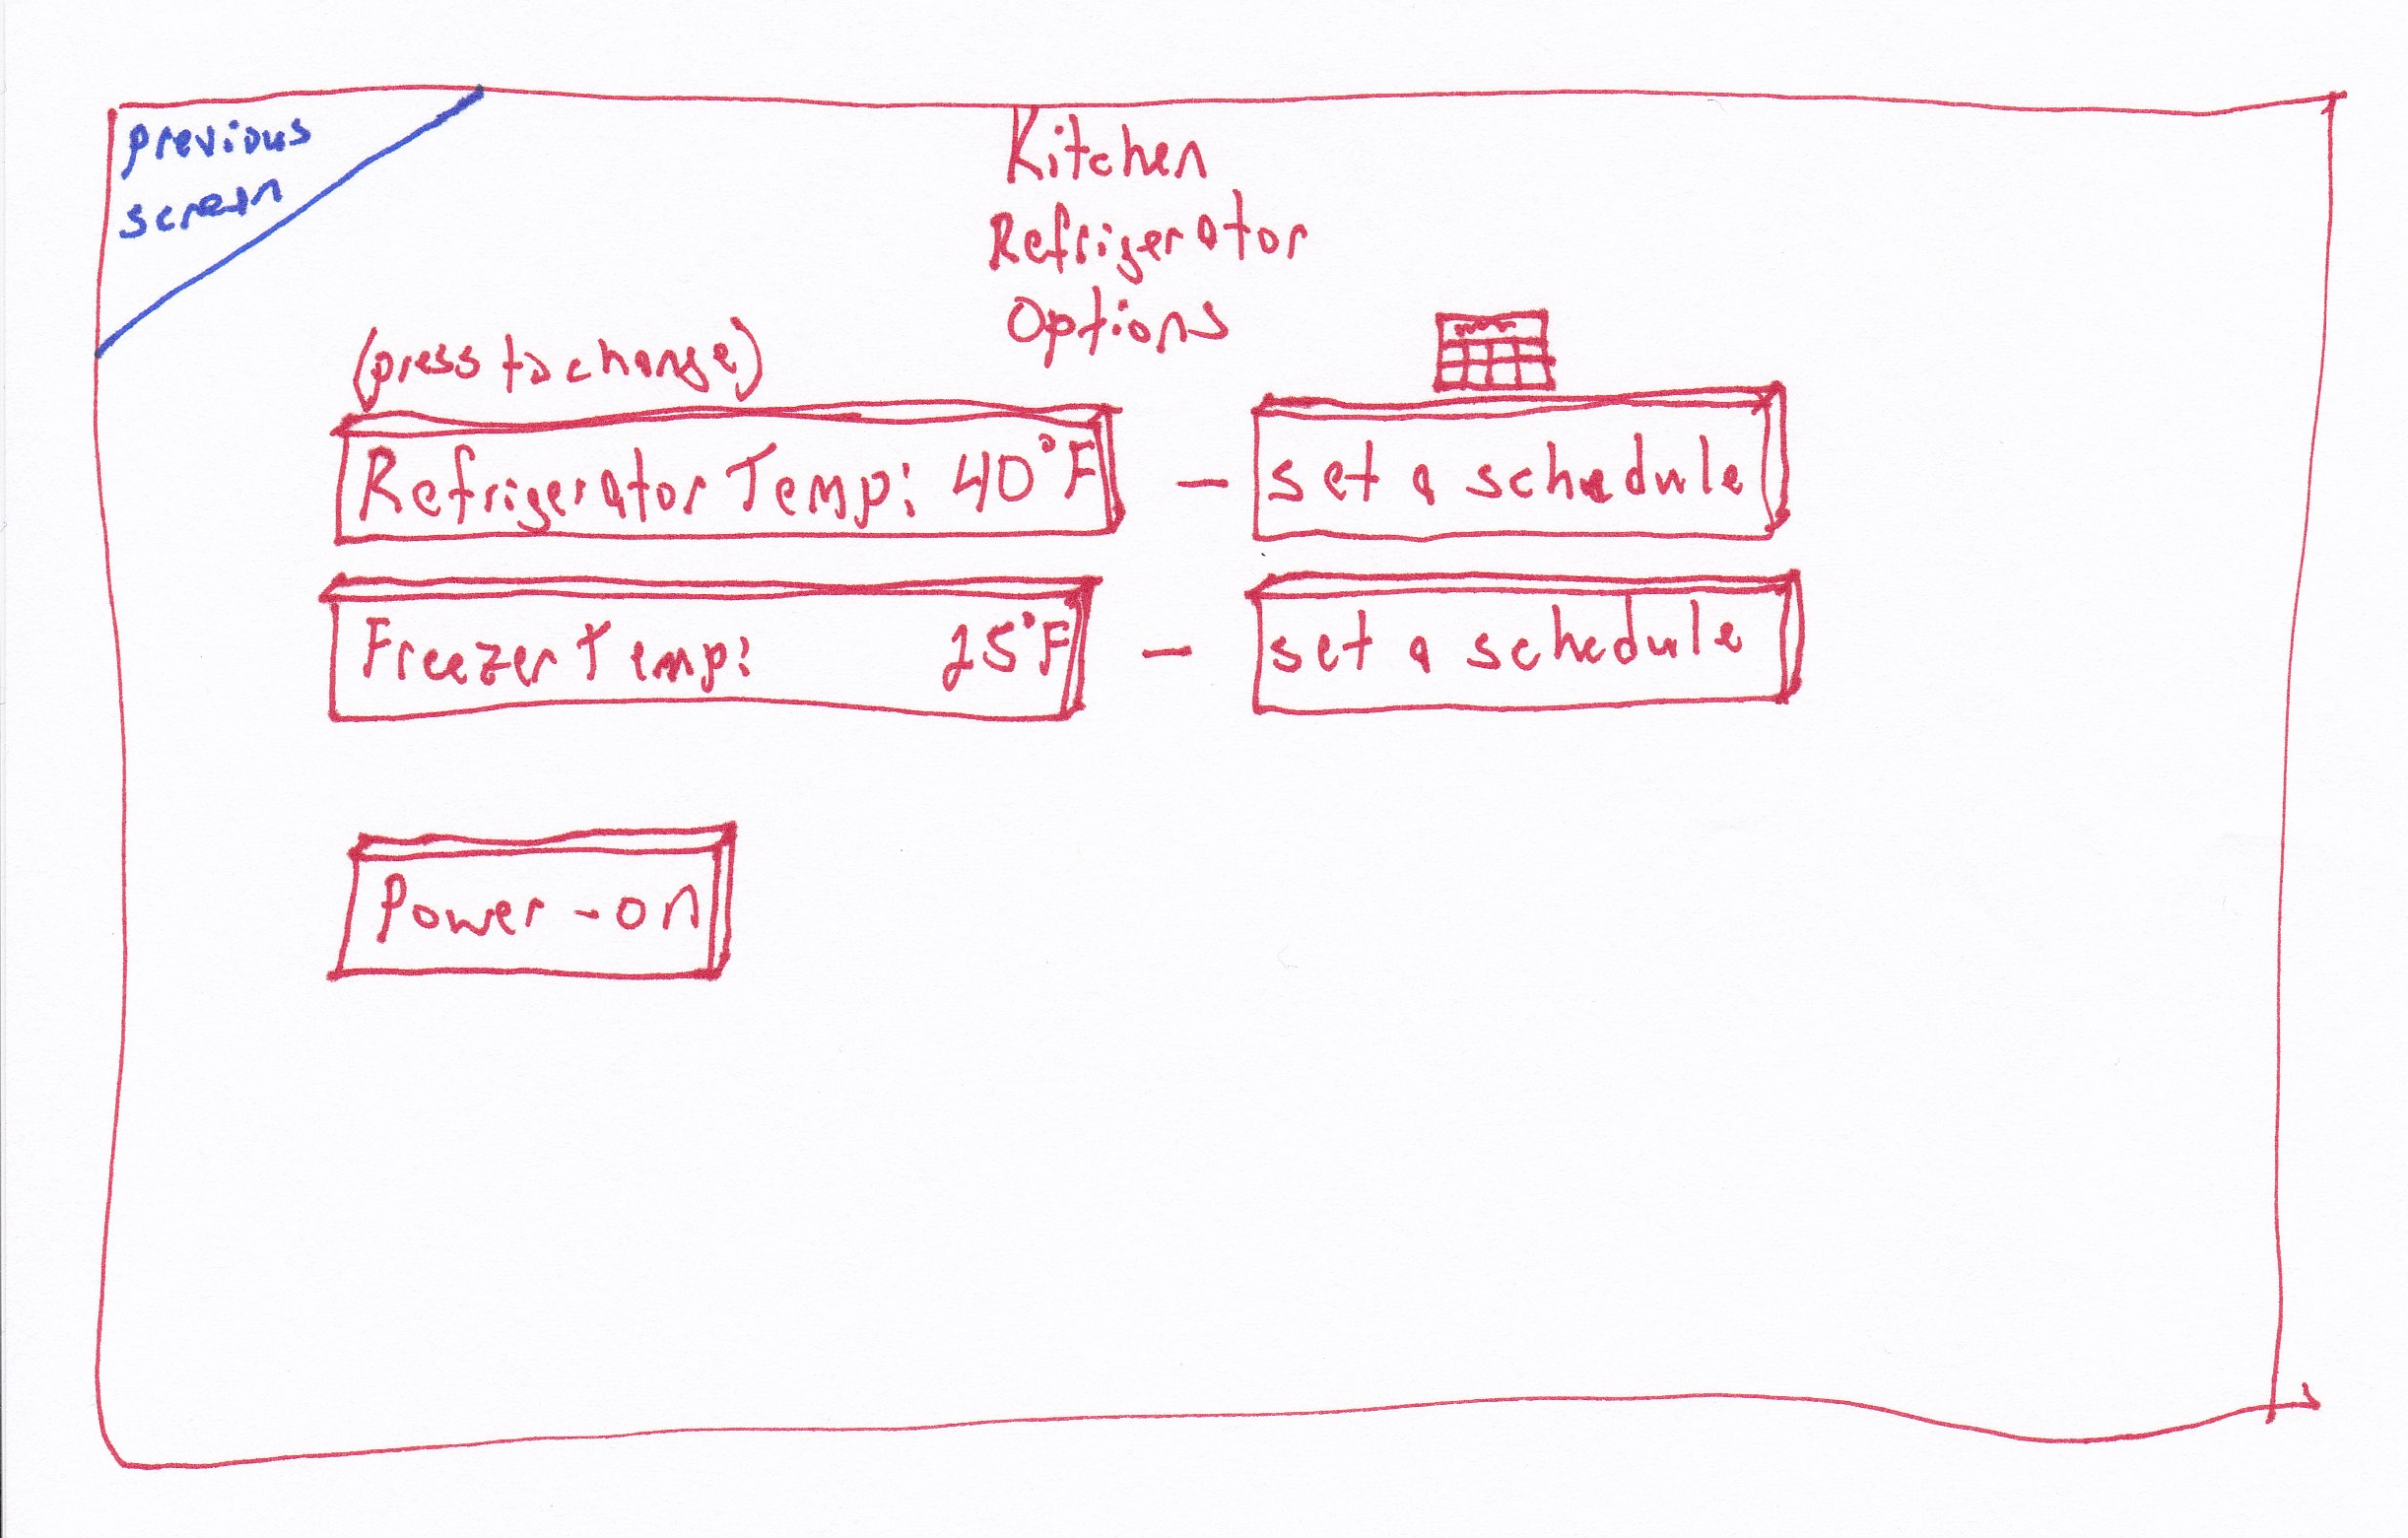 previous
screen
Kitchen
Refrigerator
Options
(press to change)
Refrigerator Temp: 40°F - set a schedule
Freezer Temp: 25°F - set a schedule
Power - on